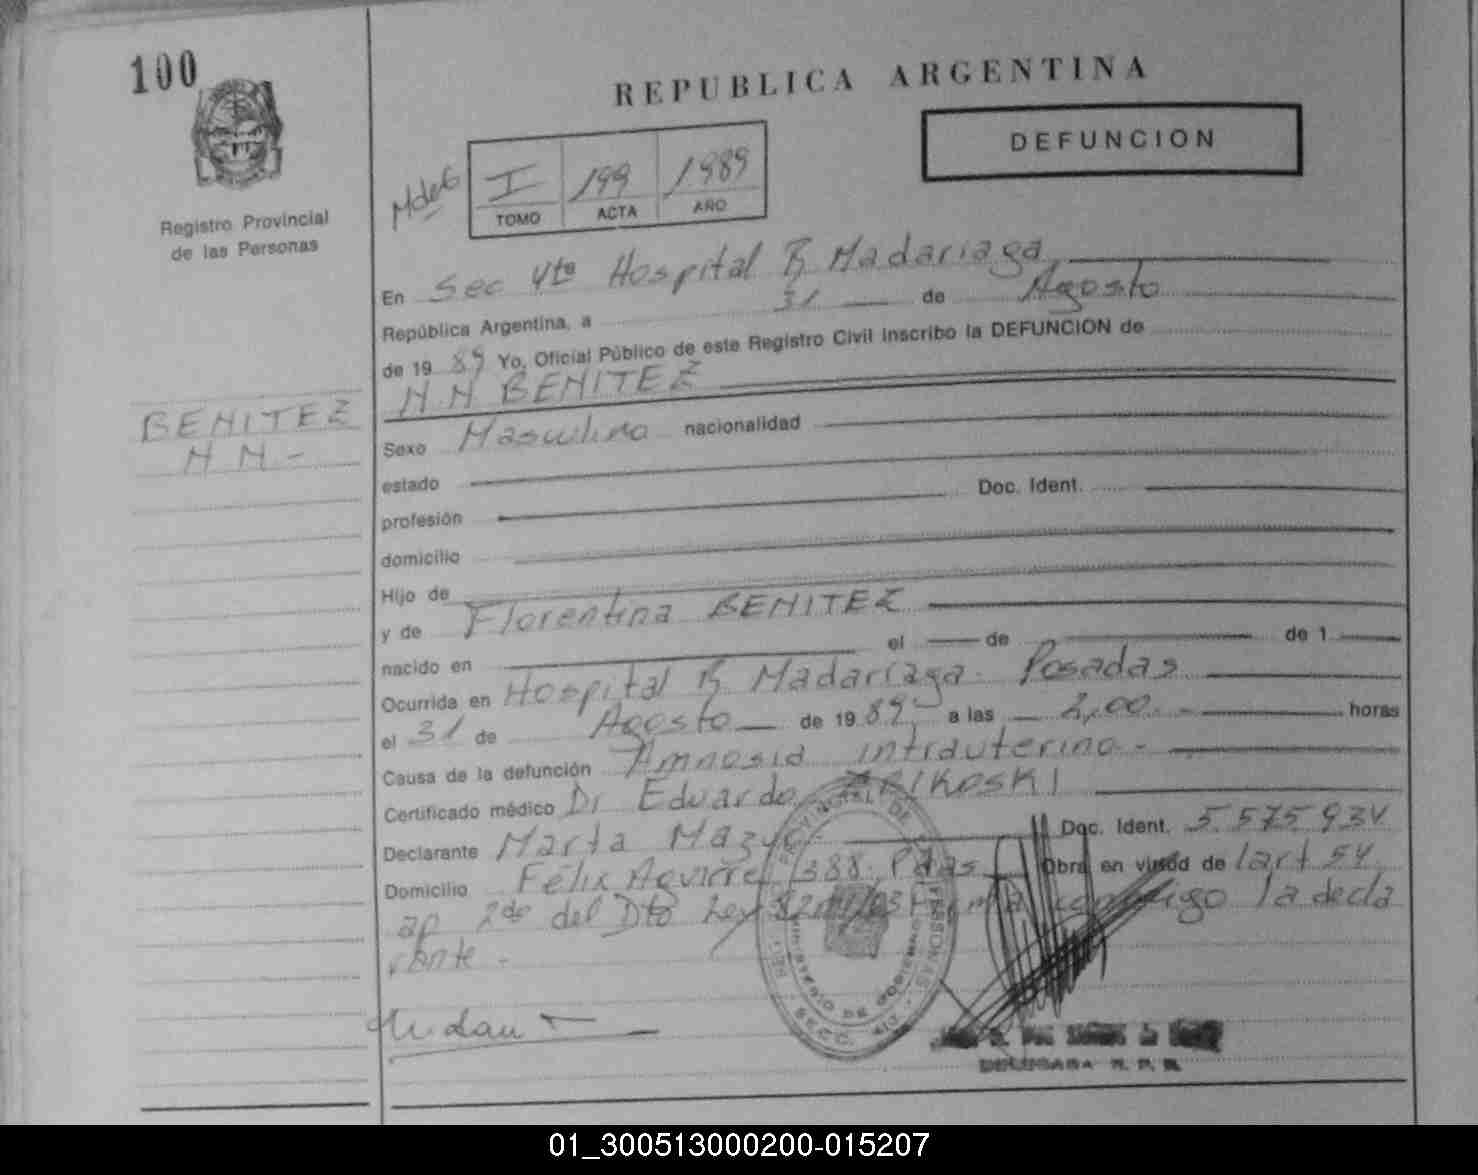 100
REPUBLICA ARGENTINA
DEFUNCION
MdeG
I 199 1989
TOMO ACTA AÑO
Registro Provincial
de las Personas
En Sec 4ta Hospital R Madariaga
República Argentina, a 31 de Agosto
de 1989 Yo, Oficial Público de este Registro Civil inscribo la DEFUNCION de
N N BENITEZ
BENITEZ
N N -
Sexo Masculino nacionalidad
estado
profesión Doc. Ident.
domicilio
Hijo de
y de Florentina BENITEZ
nacido en el de de 1
Ocurrida en Hospital R Madariaga. Posadas
el 31 de Agosto de 1989 a las 2,00 horas
Causa de la defunción Amnosia intrauterina -
Certificado médico Dr Eduardo
Declarante Marta Doc. Ident. 5.575.934
Domicilio Félix Aguirre 1388. Pdas Obra en virtud de l art 54
ap 2do del Dto Ley conmigo la decla
rante -
REG. PROVINCIAL DE PERSONAS
MINISTERIO DE GOBIERNO
SECC. 4ta
DELEGADA R. P. P.
01_300513000200-015207